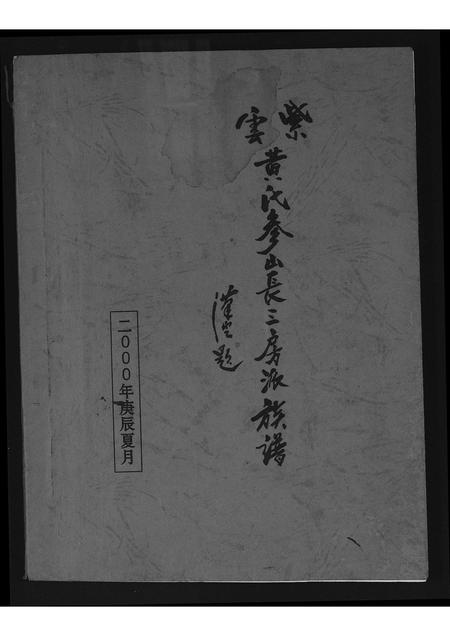 紫雲
黄氏參山長三房派族譜
漢堂題
二000年庚辰夏月